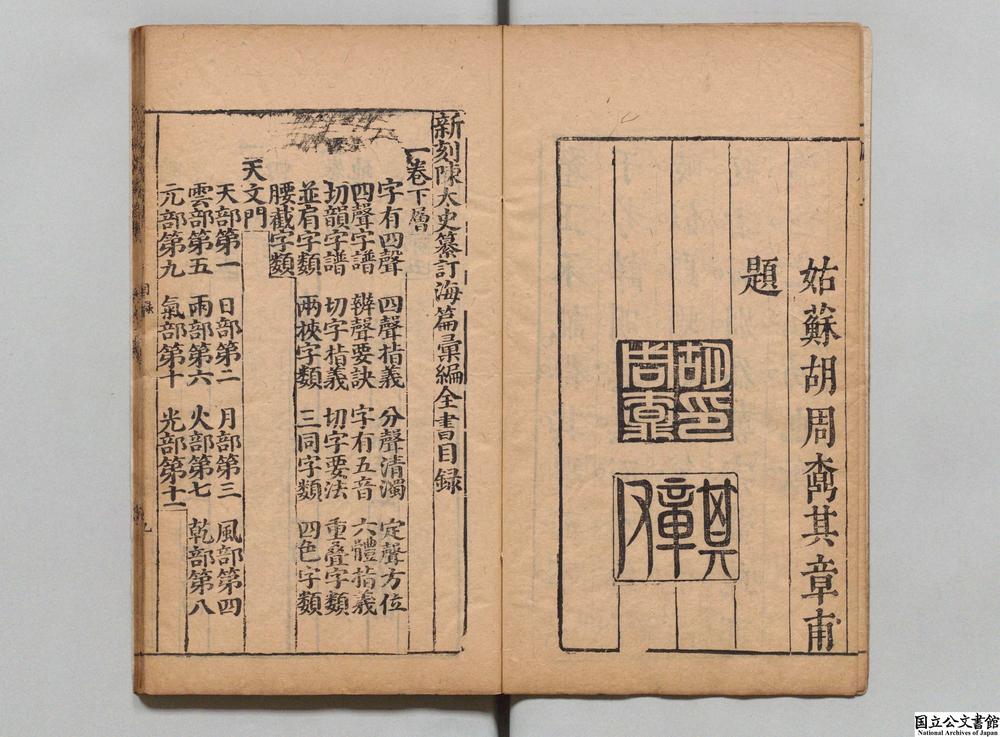 姑蘇胡周鼒其章甫
題
胡印周鼒
其章父
新刻陳太史纂訂海篇彙編全書目録
一卷下層
字有四聲 四聲指義 分聲清濁 定聲方位
四聲字譜 辨聲要訣 字有五音 六體指義
切韻字譜 切字指義 切字要法 重疊字類
並肩字類 兩字類 三同字類 四色字類
腰截字類
天文門
天部第一 日部第二 月部第三 風部第四
雲部第五 雨部第六 火部第七 乾部第八
元部第九 氣部第十 光部第十一
目録
国立公文書館
National Archives of Japan